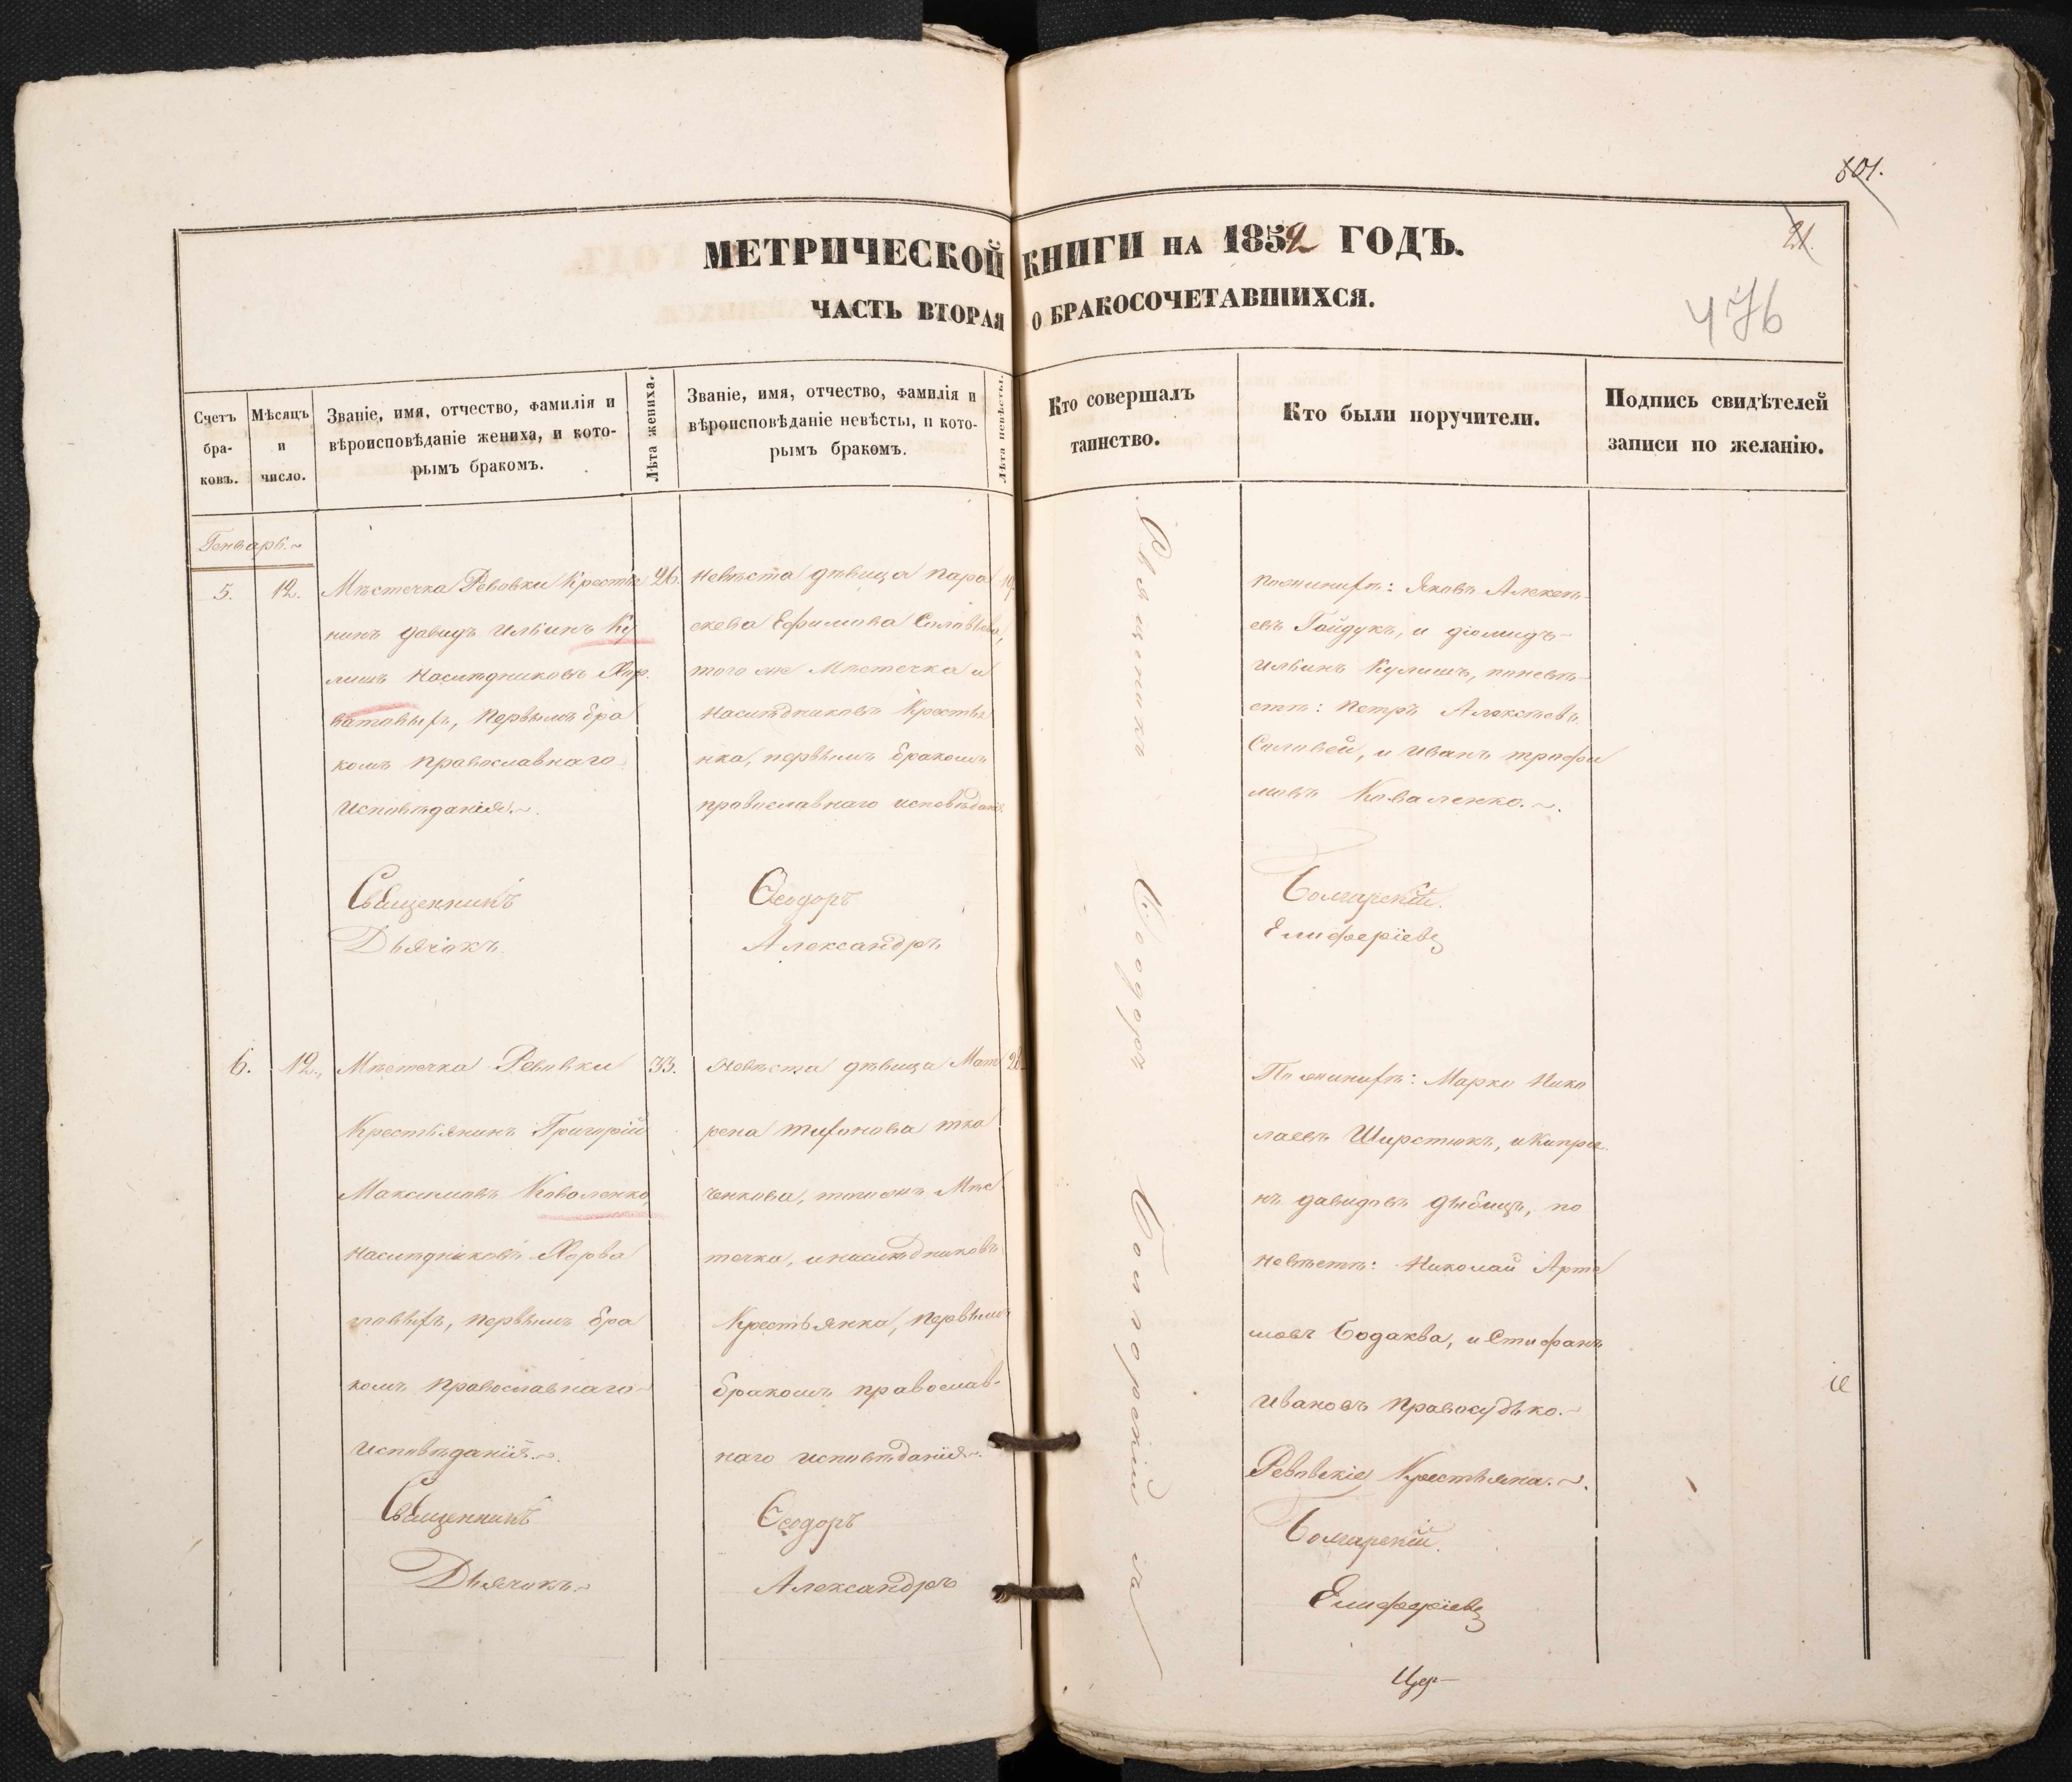 601.
21.
476
МЕТРИЧЕСКОЙ КНИГИ НА 1852 ГОДЪ.
ЧАСТЬ ВТОРАЯ О БРАКОСОЧЕТАВШИХСЯ.
Счетъ
бра-
ковъ.
Мѣсяцъ
и
число.
Званіе, имя, отчество, фамилія и
вѣроисповѣданіе жениха, и кото-
рымъ бракомъ.
Лѣта жениха.
Званіе, имя, отчество, фамилія и
вѣроисповѣданіе невѣсты, и кото-
рымъ бракомъ.
Лѣта невѣсты.
Кто совершалъ
таинство.
Кто были поручители.
Подпись свидѣтелей
записи по желанію.
Генварь.
5.
12.
Мѣстечка Ревовки Крестья
нинъ давидъ Ильинъ Ку
лишъ Наслѣдниковъ Хор
ватовыхъ, первымъ бра
комъ православнаго
исповѣданія.
26.
Невѣста дѣвица пара
скева Ефимова Соловьева,
того же Мѣстечка и
Наслѣдниковъ Крестья
нка, первымъ бракомъ
православнаго исповѣданія
19.
Священникъ Феодоръ Болгарскій
по женихѣ: Яковъ Алексѣ-
евъ Гайдукъ, и діомидъ
Ильинъ Кулишъ, по невѣ-
стѣ: Петръ Алексѣевъ
Соловей, и Иванъ трофи
мовъ Коваленко.
Священникъ Ѳеодоръ Болгарскій.
Дьячокъ Александръ Елиферіевъ
6.
12.
Мѣстечка Ревовки
Крестьянинъ Григорій
Максимовъ Коваленко
Наслѣдниковъ Хорва
товыхъ, первымъ бра
комъ Православнаго
исповѣданія.
33.
Невѣста дѣвица Мат
рена тихонова тка
ченкова, тогожъ Мѣс
течка, и наслѣдниковъ
Крестьянка, первымъ
бракомъ православ-
наго исповѣданія.
По женихѣ: Марко Нико
лаевъ Шерстюкъ, и Кипрія
нъ давидовъ дыбецъ, по
невѣстѣ: Николай Арте
мовъ Бодаква, и Стефанъ
Ивановъ Правосудько.
Ревовскіе Крестьяна.
Священникъ Ѳеодоръ Болгарскій.
Дьячокъ Александръ Елиферіевъ